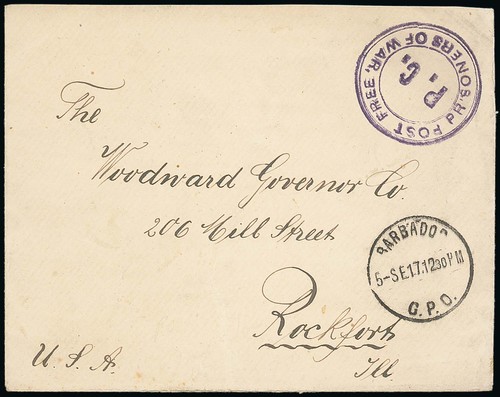 POST FREE PRISONERS OF WAR.
P. C.
The
Woodward Governor Co.
206 Mill Street
Rockfort
Ill
U. S. A.
BARBADOS
5-SE17.1230PM
G.P.O.